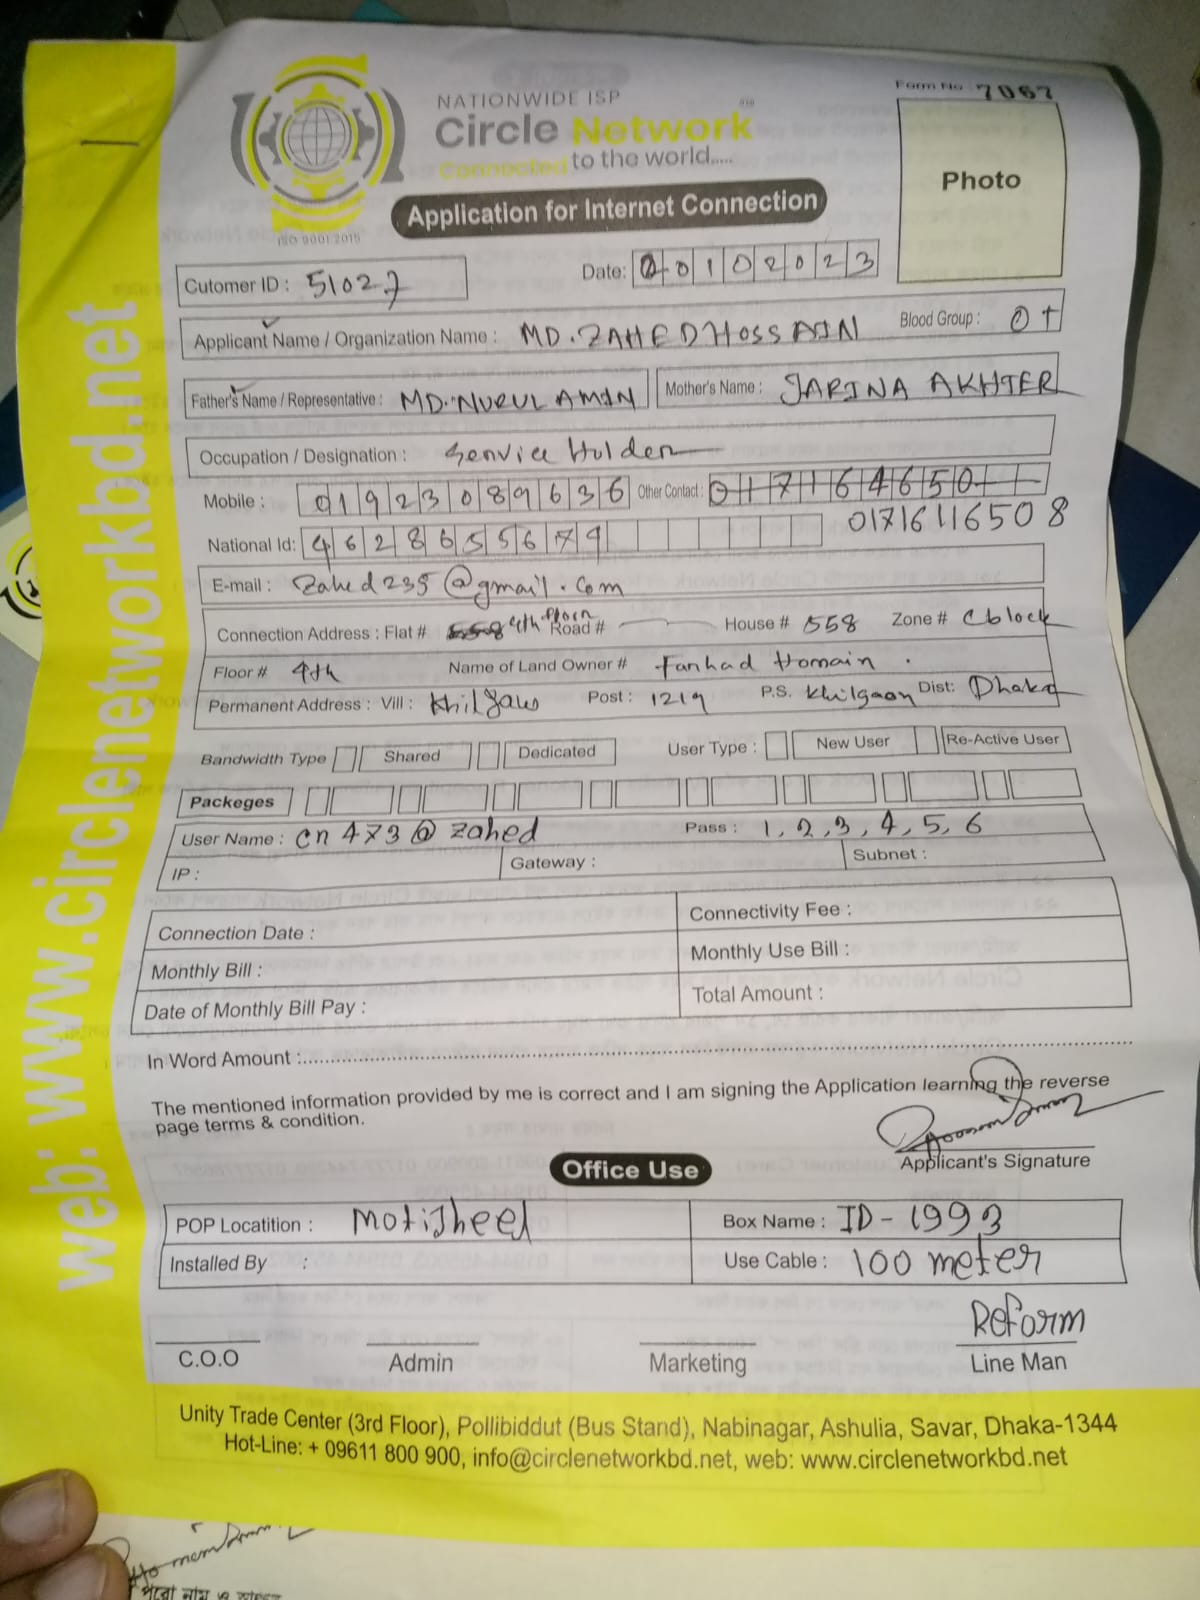 Form No 7067
NATIONWIDE ISP
Circle Network
Connected to the world.....
ISO 9001:2015
Application for Internet Connection
Photo
Cutomer ID : 51027
Date: 00102023
Applicant Name / Organization Name : MD. ZAHED HOSSAIN
Blood Group : O+
Father's Name / Representative : MD. NURUL AMIN
Mother's Name : JARINA AKHTER
Occupation / Designation : Service Holder
Mobile : 01923089636
Other Contact : 017164650
National Id: 4628655679
01716116508
E-mail : Zahed235@gmail.com
Connection Address : Flat # 558 4th Floor Road # House # 558 Zone # C block
Floor # 4th Name of Land Owner # Farhad Homain .
Permanent Address : Vill : Khilgaw Post : 1219 P.S. Khilgaon Dist: Dhaka
Bandwidth Type Shared Dedicated User Type : New User Re-Active User
Packeges
User Name : cn473@zahed Pass : 1,2,3,4,5,6
IP : Gateway : Subnet :
Connection Date : Connectivity Fee :
Monthly Bill : Monthly Use Bill :
Date of Monthly Bill Pay : Total Amount :
In Word Amount :
The mentioned information provided by me is correct and I am signing the Application learning the reverse
page terms & condition.
Applicant's Signature
Office Use
POP Locatition : Motijheel Box Name : ID-1993
Installed By : Use Cable : 100 meter
Reform
C.O.O Admin Marketing Line Man
Unity Trade Center (3rd Floor), Pollibiddut (Bus Stand), Nabinagar, Ashulia, Savar, Dhaka-1344
Hot-Line: + 09611 800 900, info@circlenetworkbd.net, web: www.circlenetworkbd.net
web: www.circlenetworkbd.net